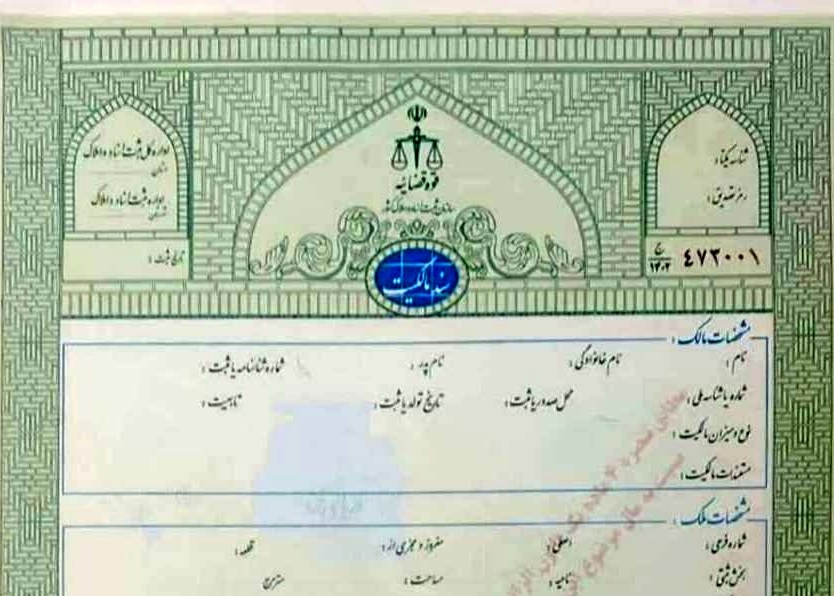 قوه قضائیه
سازمان ثبت اسناد و املاک کشور
شناسه یکتا :
رمز تصدیق :
اداره کل ثبت اسناد و املاک
استان
اداره ثبت اسناد و املاک
شهرستان
تاریخ ثبت :
۴۷۳۰۰۱
ج
۱۴۰۲
سند مالکیت
مشخصات مالک :
نام : نام خانوادگی : نام پدر : شماره شناسنامه یا ثبت :
شماره یا شناسه ملی : محل صدور یا ثبت : تاریخ تولد یا ثبت : تابعیت :
نوع و میزان مالکیت :
مستندات مالکیت :
مشخصات ملک :
شماره فرعی : اصلی : مفروز و مجزی از : قطعه :
بخش ثبتی : ناحیه : مساحت : مترمربع